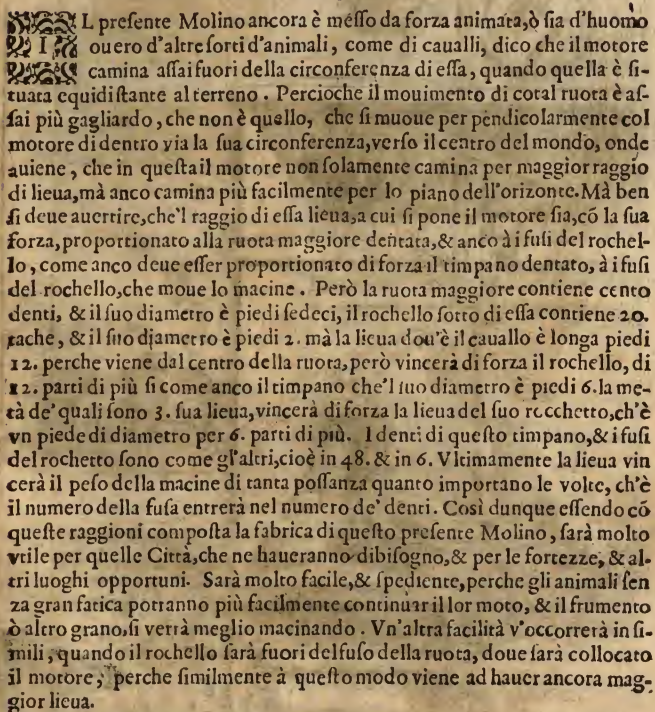 IL preſente Molino ancora è meſſo da forza animata,ò ſia d'huomo
ouero d'altre ſorti d'animali, come di caualli, dico che il motore
camina aſſai fuori della circonferenza di eſſa, quando quella è ſi-
tuata equidiſtante al terreno. Percioche il mouimento di cotal ruota è aſ-
ſai più gagliardo, che non è quello, che ſi muoue per pendicolarmente col
motore di dentro via la ſua circonferenza,verſo il centro del mondo, onde
auiene, che in queſta il motore non ſolamente camina per maggior raggio
di lieua,mà anco camina più facilmente per lo piano dell'orizonte. Mà ben
ſi deue auertire,che'l raggio di eſſa lieua,a cui ſi pone il motore ſia,cō la ſua
forza,proportionato alla ruota maggiore dentata,& anco à i fuſi del rochel-
lo, come anco deue eſſer proportionato di forza il timpano dentato, à i fuſi
del rochello,che moue lo macine. Però la ruota maggiore contiene cento
denti, & il ſuo diametro è piedi ſedeci, il rochello ſotto di eſſa contiene 20.
tache, & il ſuo diametro è piedi 2. mà la lieua dou'è il cauallo è longa piedi
12. perche viene dal centro della ruota,però vincerà di forza il rochello, di
12. parti di più ſi come anco il timpano che'l ſuo diametro è piedi 6. la me-
tà de' quali ſono 3. ſua lieua,vincerà di forza la lieua del ſuo rocchetto,ch'è
vn piede di diametro per 6. parti di più. I denti di queſto timpano,& i fuſi
del rochetto ſono come gl'altri,cioè in 48. & in 6. Vltimamente la lieua vin
cerà il peſo della macine di tanta poſſanza quanto importano le volte, ch'è
il numero della fuſa entrerà nel numero de' denti. Così dunque eſſendo cō
queſte raggioni compoſta la fabrica di queſto preſente Molino, ſarà molto
vtile per quelle Città,che ne haueranno dibiſogno,& per le fortezze, & al-
tri luoghi opportuni. Sarà molto facile,& ſpediente,perche gli animali ſen
za gran fatica potranno più facilmente continuar il lor moto, & il frumento
ò altro grano,ſi verrà meglio macinando. Vn'altra facilità v'occorrerà in ſi-
mili, quando il rochello ſarà fuori del fuſo della ruota, doue ſarà collocato
il motore, perche ſimilmente à queſto modo viene ad hauer ancora mag-
gior lieua.